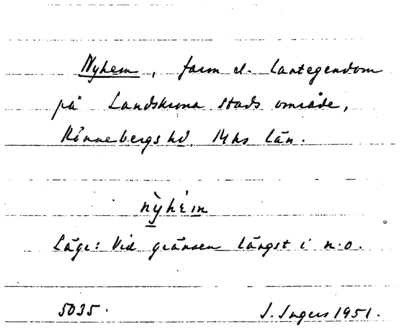 Nyhem, farm el. lantegendom
på Landskrona stads område,
Rönnebergs hd, Mhs län.
nỳhèm
Läge: Vid gränsen längst i n.o.
5035. I. Ingers 1951.